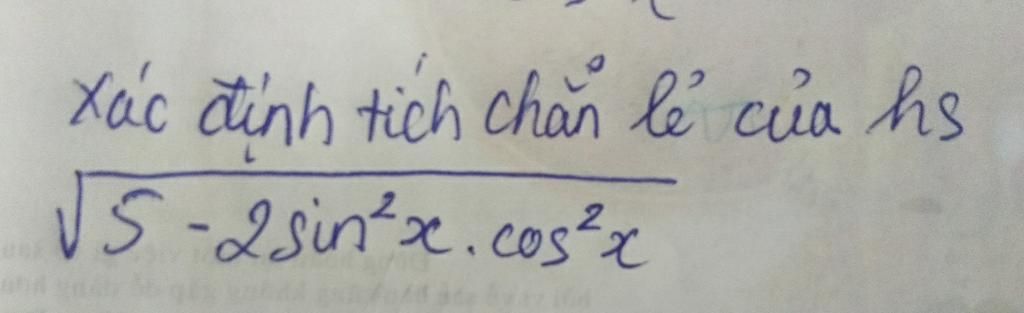 Xác định tích chẵn lẻ của hs
√5 - 2sin²x . cos²x